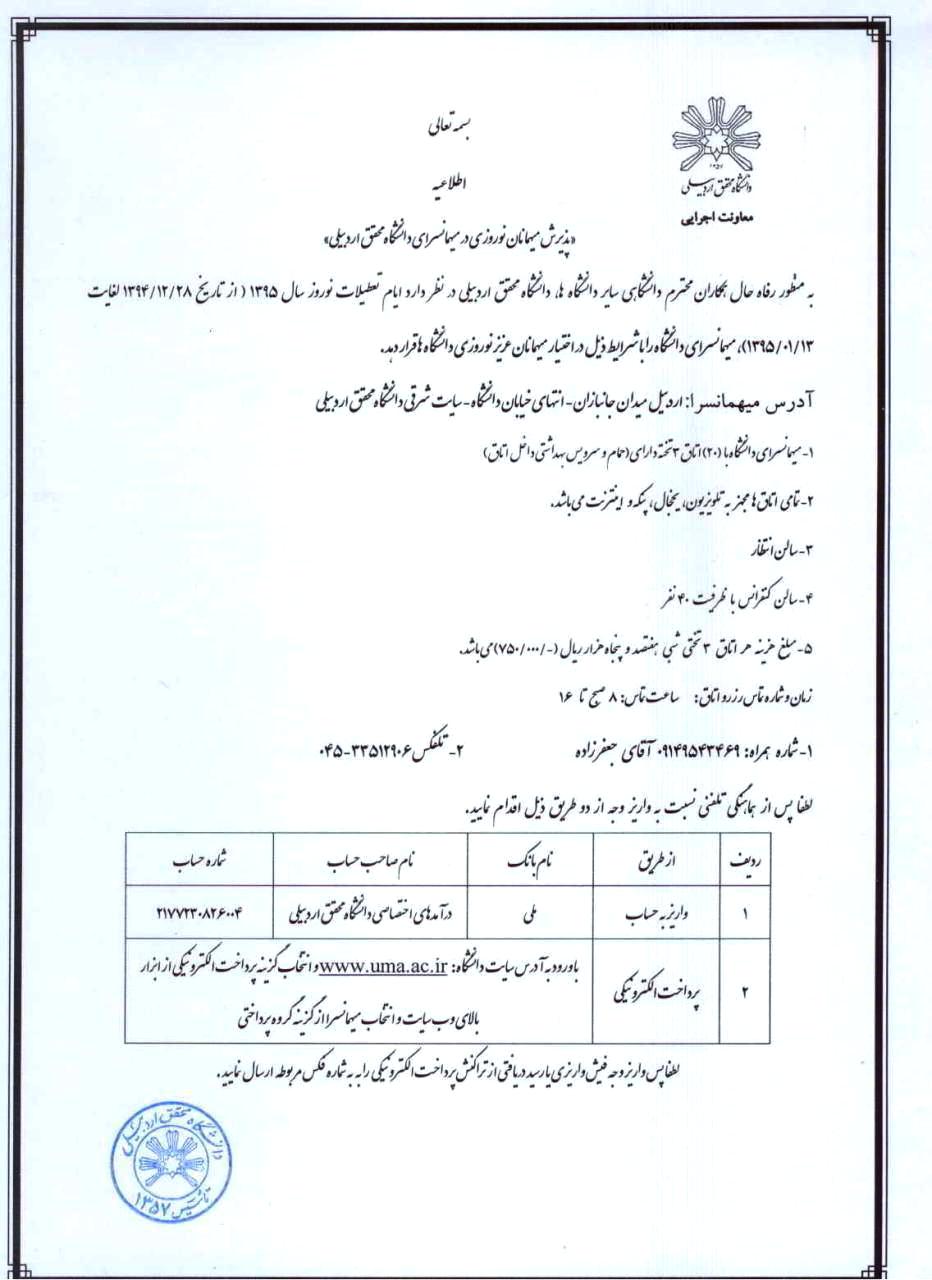 بسمه تعالی
۱۳۵۷
دانشگاه محقق اردبیلی
معاونت اجرایی
اطلاعیه
«پذیرش میهمانان نوروزی در میهمانسرای دانشگاه محقق اردبیلی»
به منظور رفاه حال همکاران محترم دانشگاهی سایر دانشگاه ها، دانشگاه محقق اردبیلی در نظر دارد ایام تعطیلات نوروز سال ۱۳۹۵ ( از تاریخ ۱۳۹۴/۱۲/۲۸ لغایت
۱۳۹۵/۰۱/۱۳)، میهمانسرای دانشگاه را با شرایط ذیل در اختیار میهمانان عزیز نوروزی دانشگاه ها قرار دهد.
آدرس میهمانسرا: اردبیل میدان جانبازان- انتهای خیابان دانشگاه- سایت شرقی دانشگاه محقق اردبیلی
۱- میهمانسرای دانشگاه با (۲۰) اتاق ۳ تخته دارای (حمام و سرویس بهداشتی داخل اتاق)
۲- تمامی اتاق ها مجهز به تلویزیون، یخچال، پنکه و اینترنت می باشد.
۳- سالن انتظار
۴- سالن کنفرانس با ظرفیت ۴۰ نفر
۵- مبلغ هزینه هر اتاق ۳ تختی شبی هفتصد و پنجاه هزار ریال (-/۷۵۰/۰۰۰) می باشد.
زمان و شماره تماس رزرو اتاق: ساعت تماس: ۸ صبح تا ۱۶
۱- شماره همراه: ۰۹۱۴۹۵۴۳۴۶۹ آقای جعفرزاده ۲- تلفکس ۳۳۵۱۲۹۰۶-۰۴۵
لطفا پس از هماهنگی تلفنی نسبت به واریز وجه از دو طریق ذیل اقدام نمایید.
ردیف از طریق نام بانک نام صاحب حساب شماره حساب
۱ واریز به حساب ملی درآمدهای اختصاصی دانشگاه محقق اردبیلی ۲۱۷۷۲۳۰۸۲۶۰۰۴
۲ پرداخت الکترونیکی با ورود به آدرس سایت دانشگاه: www.uma.ac.ir و انتخاب گزینه پرداخت الکترونیکی از ابزار
بالای وب سایت و انتخاب میهمانسرا از گزینه گروه پرداختی
لطفا پس واریز وجه فیش واریزی یا رسید دریافتی از تراکنش پرداخت الکترونیکی را به به شماره فکس مربوطه ارسال نمایید.
دانشگاه محقق اردبیلی
تاسیس ۱۳۵۷